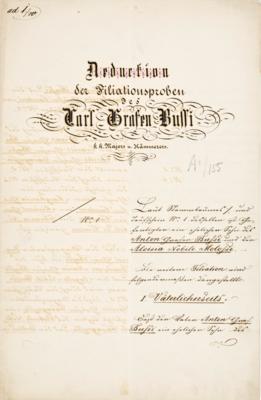 ad 1/10
Deduktion
der Filiationsproben
Des
Carl Grafen Bussi
k. k. Majors u. Kämmerers.
A1/155
/ Nr. 1
Laut Stammbaumes und
Taufschein Nr. 1 desselben ist
ein ehelicher Sohn des
Anton Grafen Bussi und der
Aloisia Nobile
Die weitere Filiation wird
folgendermaßen dargestellt.
I Väterlicherseits.
Daß der Vater Anton Graf
Bussi ein ehelicher Sohn des